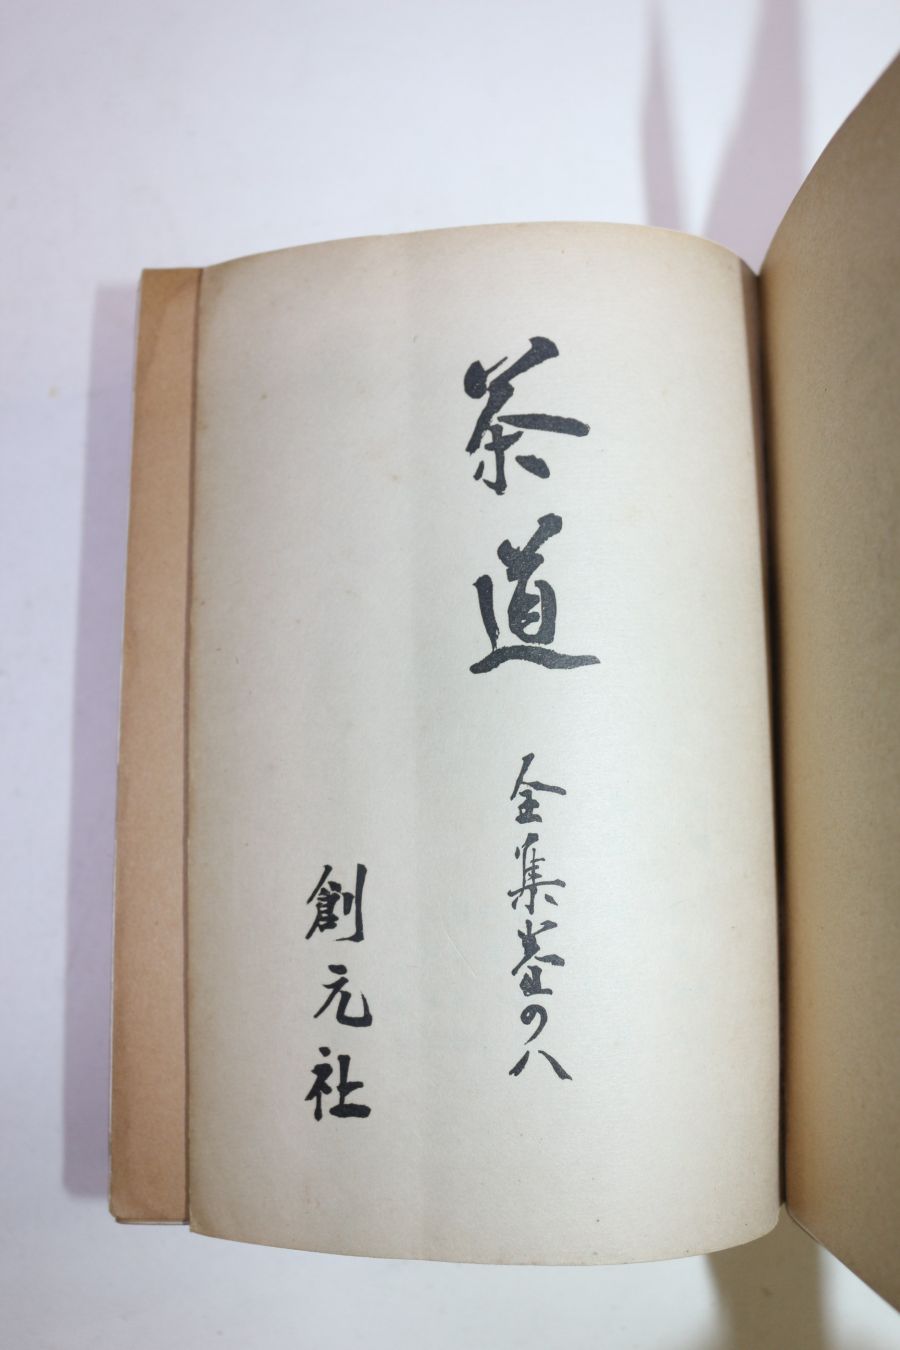 茶道 全集 巻の八
創元社